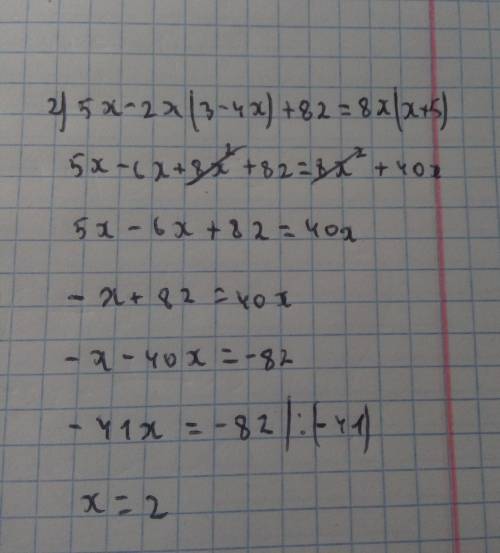 2) 5x-2x(3-4x)+82=8x(x+5)
5x-6x+8x²+82=8x²+40x
5x-6x+82=40x
-x+82=40x
-x-40x=-82
-41x=-82|:(-41)
x=2